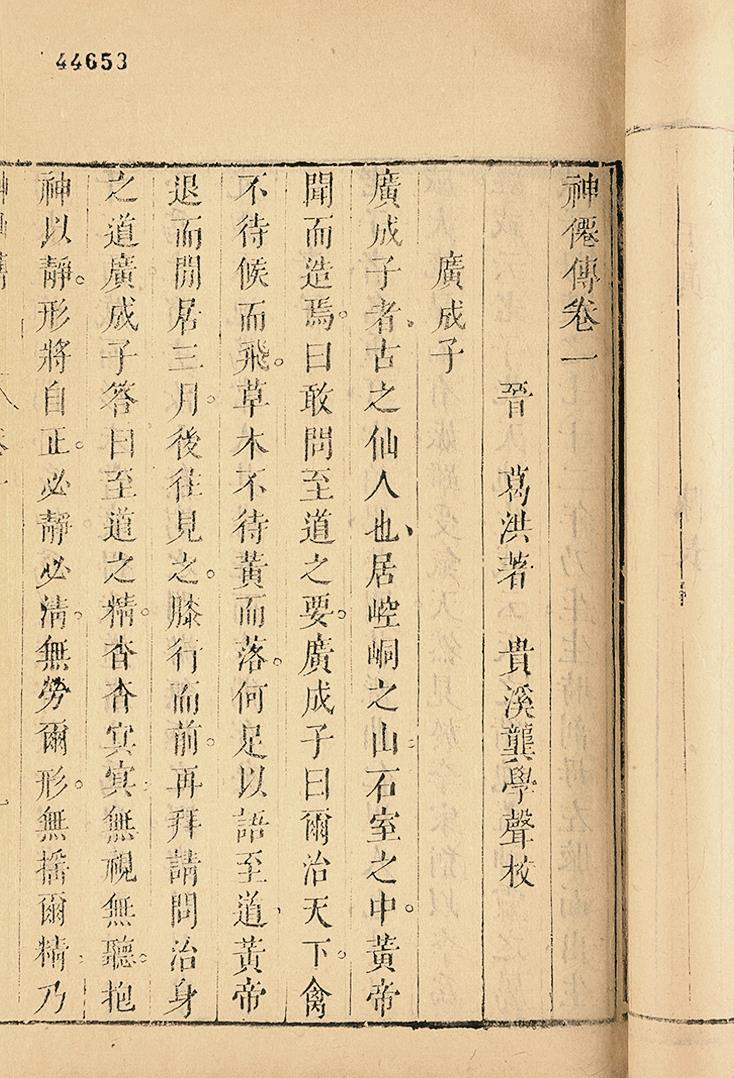 44653
神僊傳卷一
晉　葛洪著　貴溪龔學聲校
廣成子
廣成子者。古之仙人也、居崆峒之山。石室之中。黃帝
聞而造焉。曰敢問至道之要。廣成子曰爾治天下。禽
不待候而飛。草木不待黃而落。何足以語至道、黃帝
退而閒居三月。後往見之。膝行而前。再拜請問治身
之道廣成子答曰至道之精。杳杳冥冥。無視無聽。抱
神以靜。形將自正。必靜必淸。無勞爾形。無搖爾精、乃